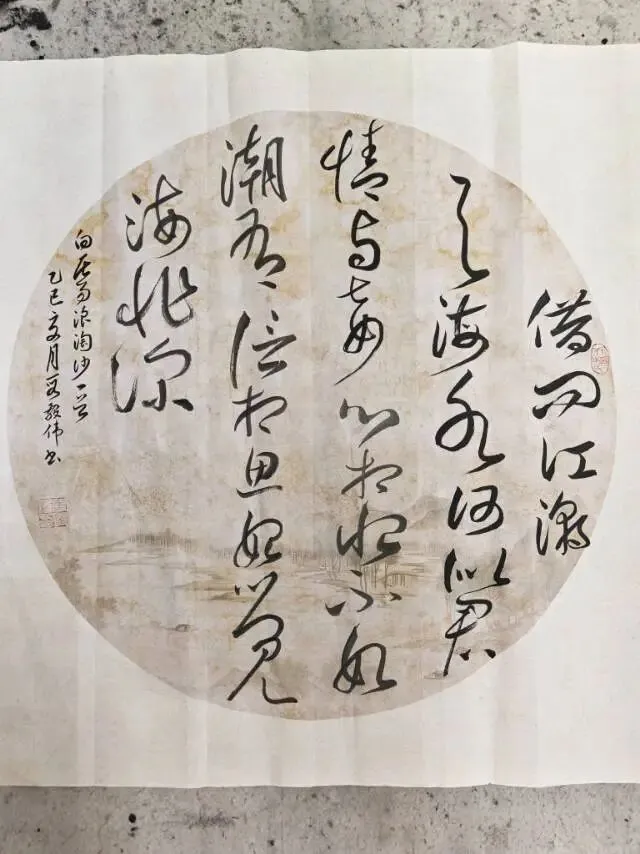 借问江潮
与海水何似君
情与妾心相恨不如
潮有信相思始觉
海非深
白居易浪淘沙一首
乙巳夏月毅伟书